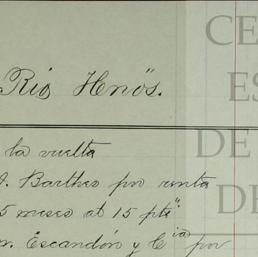 Rio Hnos.
la vuelta
J. Barthes por renta
5 meses at 15 pts.
Escandón y Cia por
CE
ES
DE
DE